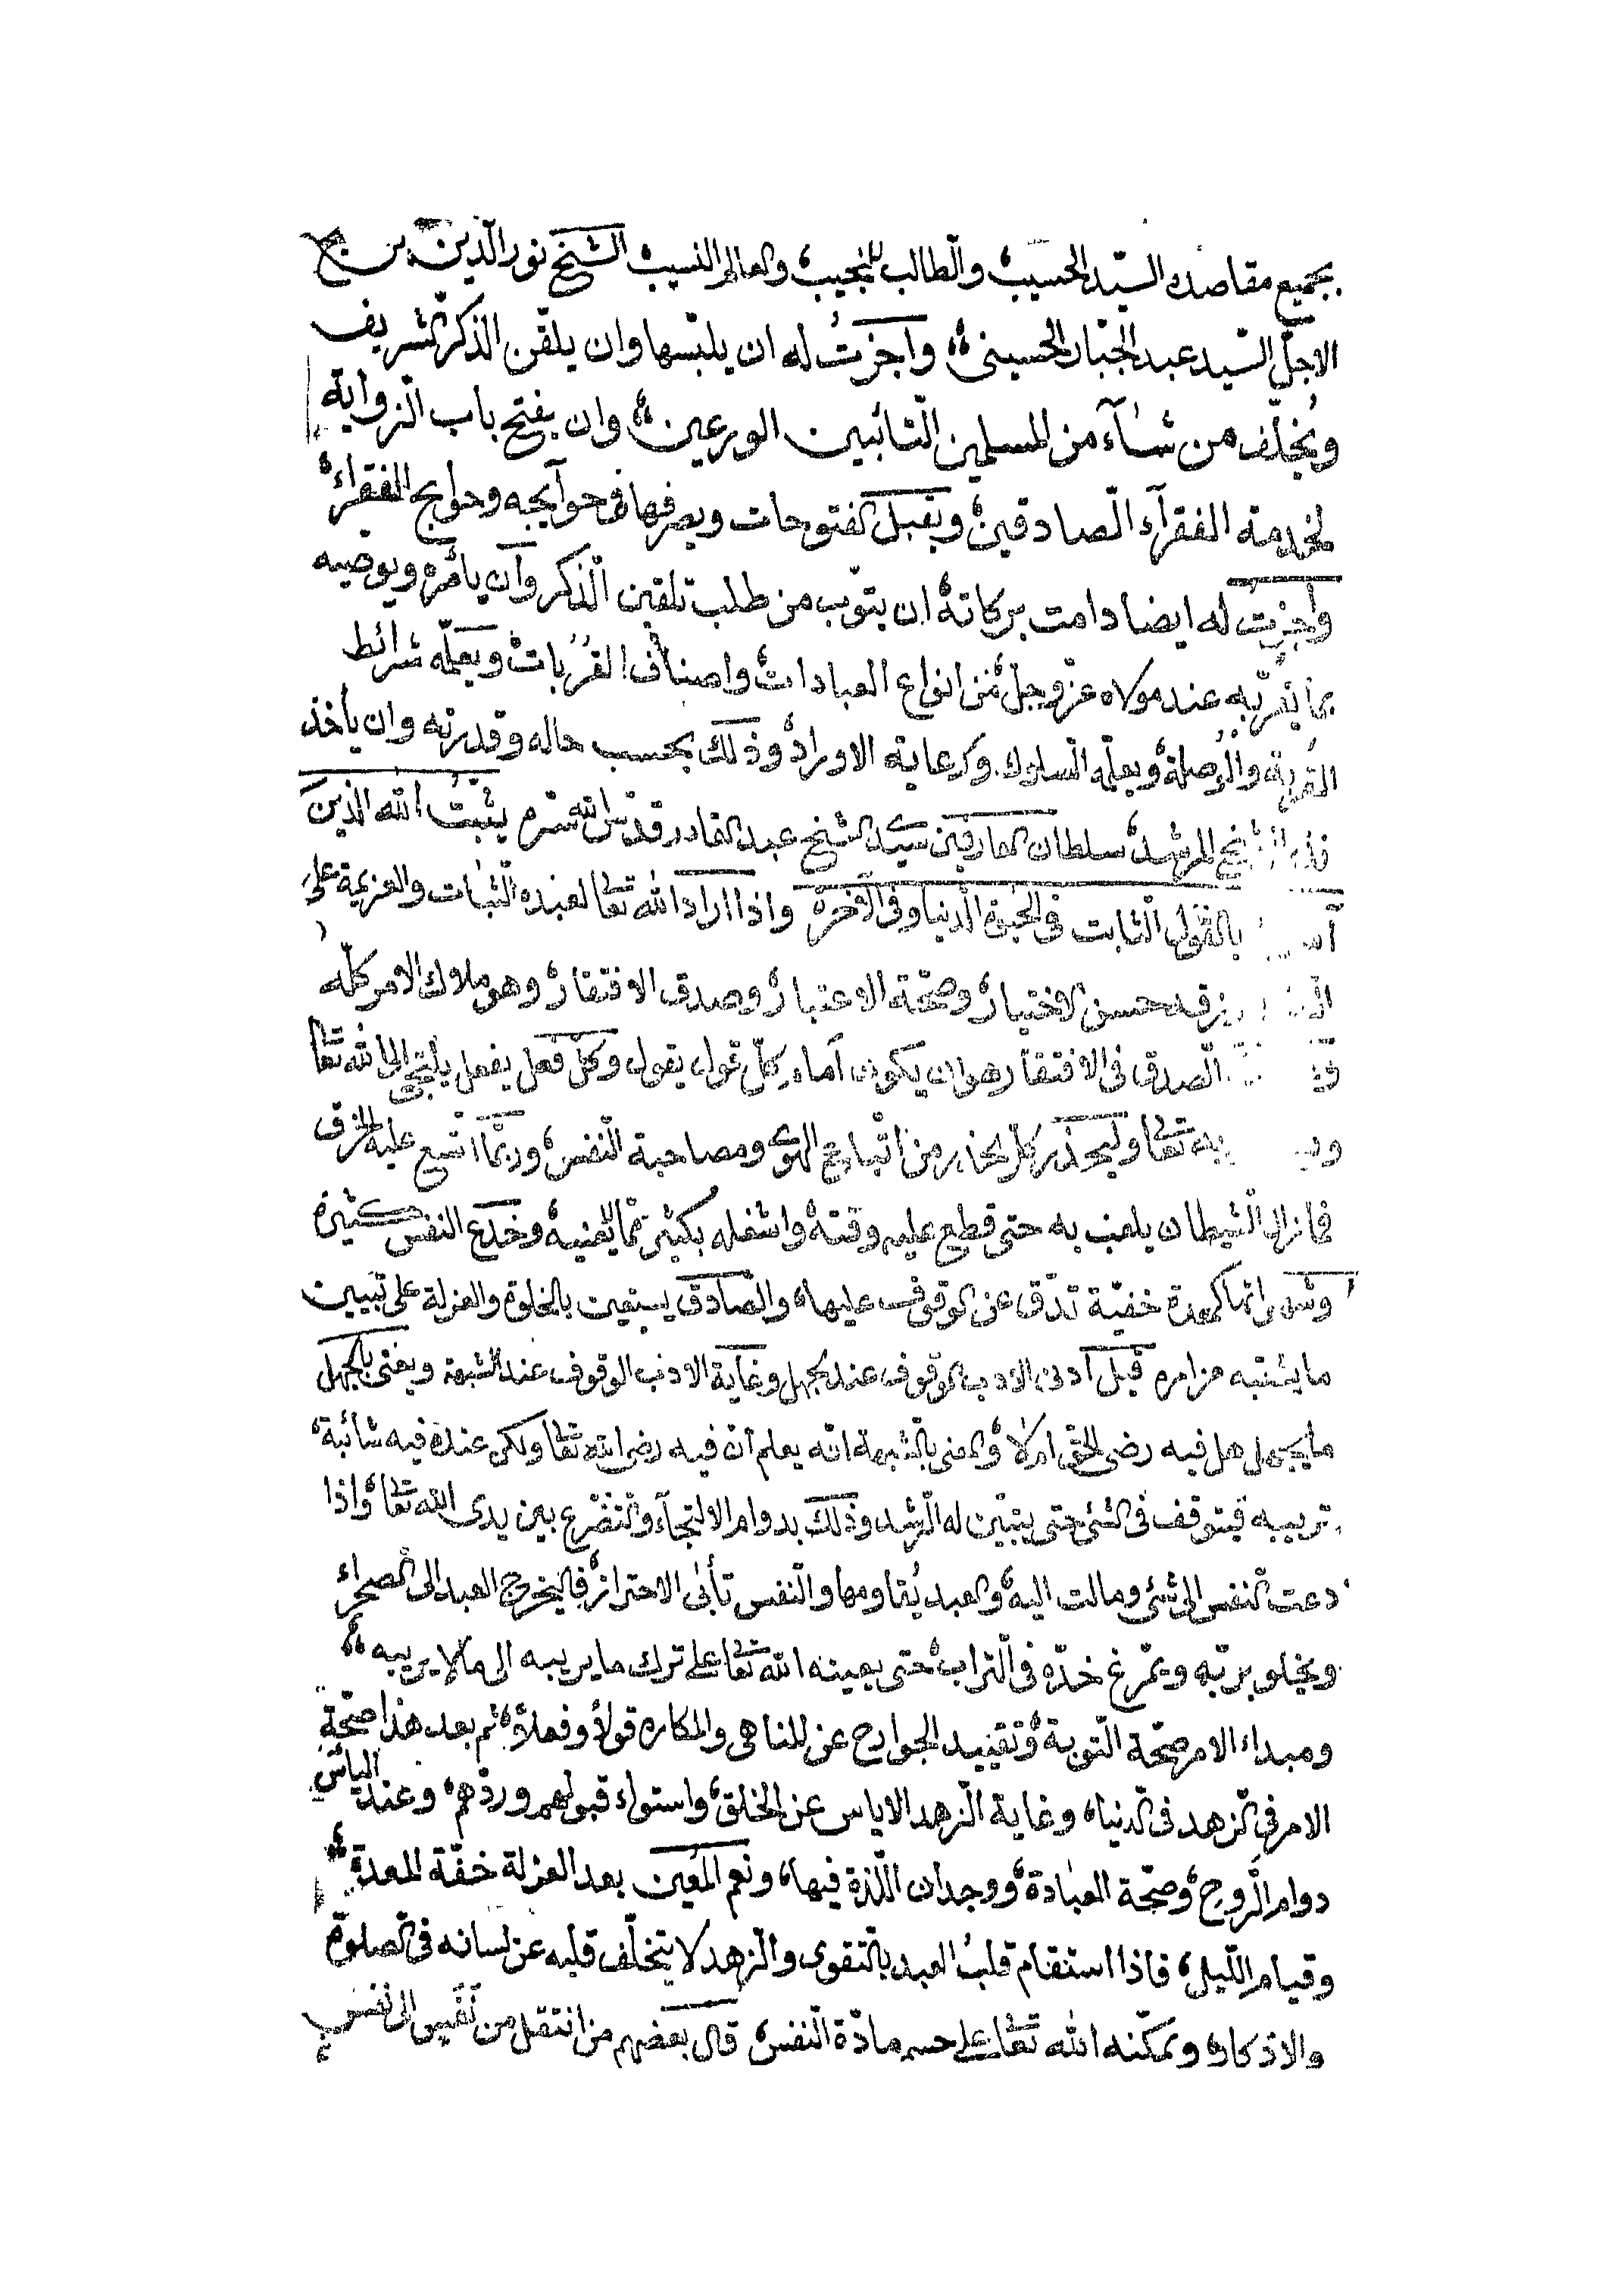 بجميع مقاصده السيّد الحسيب والطالب النجيب والعالم النسيب الشيخ نور الدين بن
الاجلّ السّيد عبد الجبّار الحسينى واجزتُ له ان يلبسها وان يلقّن الذكر الشريف
ويُخلّف من شآء من المسلمين التّائبين الورعين وان يفتح باب الزواية
لخدمة الفقرآء الصّادقين ويقبل الفتوحات ويصرفها فى حوآيجه وحوايج الفقراء
واجزتُ له ايضا دامت بركاته ان يتوّب من طلب تلقين الذّكر وان يأمره ويوصيه
بما يقربّه عند مولاه عزّ وجلّ من انواع العبادات واصناف القُرُبات ويعلّمه شرائط
القربة والوُصلة ويعلّمه السلوك وكرعاية الاوراد وذلك بحسب حاله وقدرته وان يأخذ
المرشد سلطان العارفين سيّد الشيخ عبد القادر قدّس الله سرّه يثبّتُ الله الذين
بالقول الثابت فى الحيوة الدنيا وفى الآخرة واذا اراد الله تعا لعبده الثّبات والعزيمة على
يرزقه حسن الاختيار وصحّة الاعتبار وصدق الافتقار وهو ملاك الامر كلّه
الصدق فى الافتقار هو ان يكون امام كلّ قول يقول وكلّ فعل يفعل يلتجى الى الله تعا
تعا وليحذر كلّ الحذر من اتّباع الهوى ومصاحبة النّفس وربّما اتّسع عليه الخرق
فما زال الشّيطان يلعب به حتى قطع عليه وقته واشغله بكثير ممّا لا يعنيه وخدع النفس كثيرة
وشهواتها كمودة خفيّة تدّق عن الوقوف عليها والصّادق يستعين بالخلوة والعزلة على تبيين
ما يشتبه من امره قيل ادنى الادب الوقوف عند الجهل وغاية الادب الوقوف عند الشبهة ويعنى بالجهل
ما يجهل هل فيه رضى الحق ام لا والمعنى بالشّبهة انّه يعلم ان فيه رضى الله تعا ولكن عنده فيه شائبة
تريبه فيتوقف فى الشئ حتى يتبيّن له الرّشد وذلك بدوام الالتجآء والتّضرّع بين يدى الله تعا واذا
دعت النفس الى شئ ومالت اليه والعبد يُقاومها والنّفس تأبى الاحتراز فاليخرج العبد الى الصحراء
ويخلو بربّه ويمرّغ خدّه فى التّراب حتى يعينه الله تعا على ترك ما يريبه الى ما لا يريبه
ومبداء الامر صحّة التّوبة وتقييد الجوارح عن المناهى والمكاره قولاً وفعلاً ثم بعد هذا صحّة
الامر فى الزهد فى الدنيا وغاية الزهد الاياس عن الخلق واستواء قبولهم وردّهم وعند الياس
دوام الرّوح وصحّة العبادة ووجدان اللّذة فيها ونعم المُعين بعد العزلة خفّة المعدة
وقيام اللّيل فاذا استقام قلبُ العبد بالتقوى والزهد لا يتخلّف قلبه عن لسانه فى الصلوة
والاذكار ويمكّنه الله تعا على حسم مادّة النّفس قال بعضهم من انتقل من نَفَس الى نفس